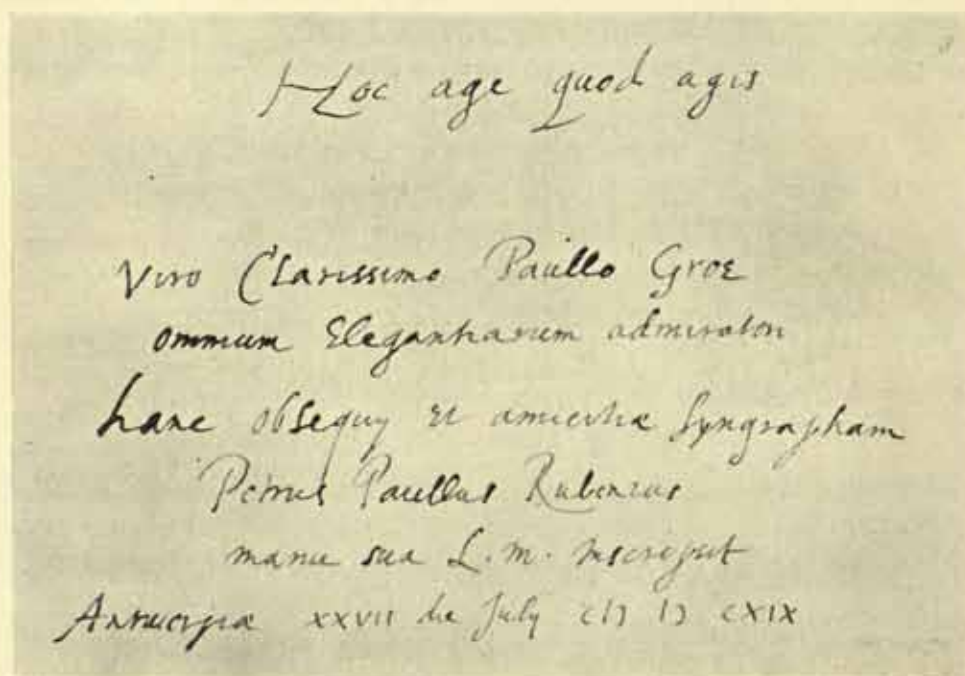 Hoc age quod agis
Viro Clarissimo Paullo Groe
omnium Elegantiarum admiratori
hanc obsequy et amicitiæ syngrapham
Petrus Paullus Rubenius
manu sua L. m. inscripsit
Antwerpiæ XXVII die July CIↃ IↃ CXIX